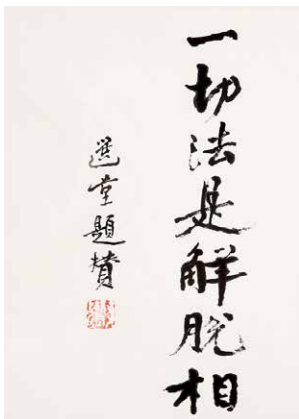 一切法是解脫相
選堂題贊